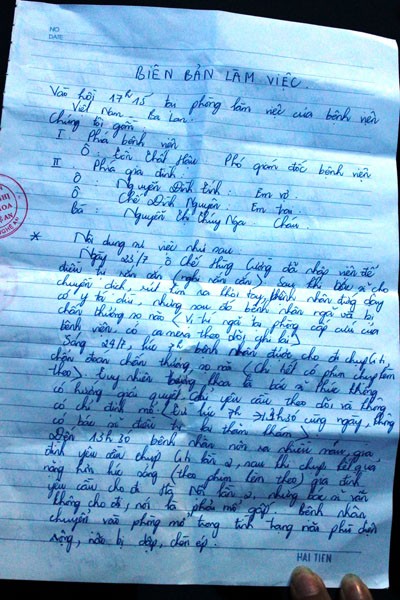 NO
DATE
BIÊN BẢN LÀM VIỆC.
Vào hồi 17h15 tại phòng làm việc của bệnh viện
Việt Nam - Ba Lan.
Chúng tôi gồm
I Phía bệnh viện
Ô Tôn Thất Phó giám đốc bệnh viện
II Phía gia đình
Ô : Nguyễn Đình Tính : Em rể.
Ô : Chế Đình Nguyên : Em trai
Bà : Nguyễn Thị Thúy Nga Cháu.
* Nội dung sự việc như sau
Ngày 23/7 ô Chế Hùng Cường đã nhập viện để
điều trị rắn cắn (nghi rắn cắn) sau khi bác sĩ cho
chuyền dịch, rút kim ra khỏi tay, bệnh nhân đứng dậy
có y tá dìu, nhưng sau đó bệnh nhân ngã và bị
chấn thương sọ não (Vị trí ngã tại phòng cấp cứu của
bệnh viện, có camera theo dõi ghi lại)
Sáng 24/7, lúc 7h bệnh nhân được cho đi chụp
chẩn đoán chấn thương sọ não (Chi tiết có phim chụp kèm
theo). Tuy nhiên khoa là bác sĩ Phúc không
có hướng giải quyết. Chỉ yêu cầu theo dõi và không
có chỉ định mổ. (từ lúc 7h 13h30 cùng ngày, không
có bác sĩ điều trị lại thăm khám)
Đến 13h30 bệnh nhân nôn ra nhiều máu, gia
đình yêu cầu chụp lần 2, sau khi chụp kết quả
nặng hơn lúc sáng (theo phim kèm theo) gia đình
yêu cầu cho đi Hà Nội lần 2, nhưng bác sĩ vẫn
không cho đi, nói là phải mổ gấp. Bệnh nhân
chuyển vào phòng mổ trong tình trạng não phù diện
rộng, não bị dập, chèn ép.
HẢI TIẾN